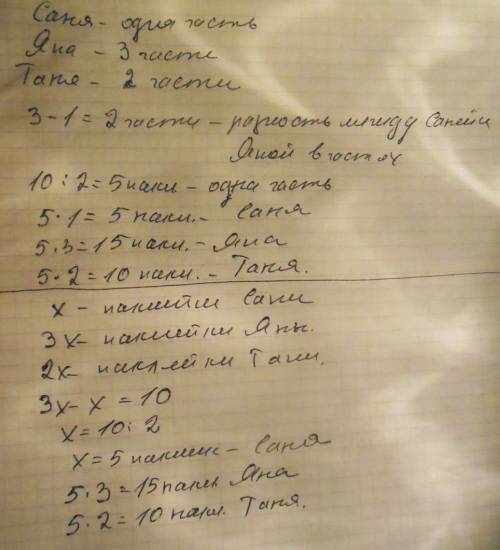 Саня - одна часть
Яна - 3 части
Таня - 2 части
3-1=2 части - разность между Саней и
Яной в частях
10:2=5 накл - одна часть
5·1=5 накл. - Саня
5·3=15 накл. - Яна
5·2=10 накл. - Таня.
х - наклейки Сани
3х - наклейки Яны.
2х - наклейки Тани.
3х-х=10
х=10:2
х=5 наклеек - Саня
5·3=15 накл Яна
5·2=10 накл. Таня.